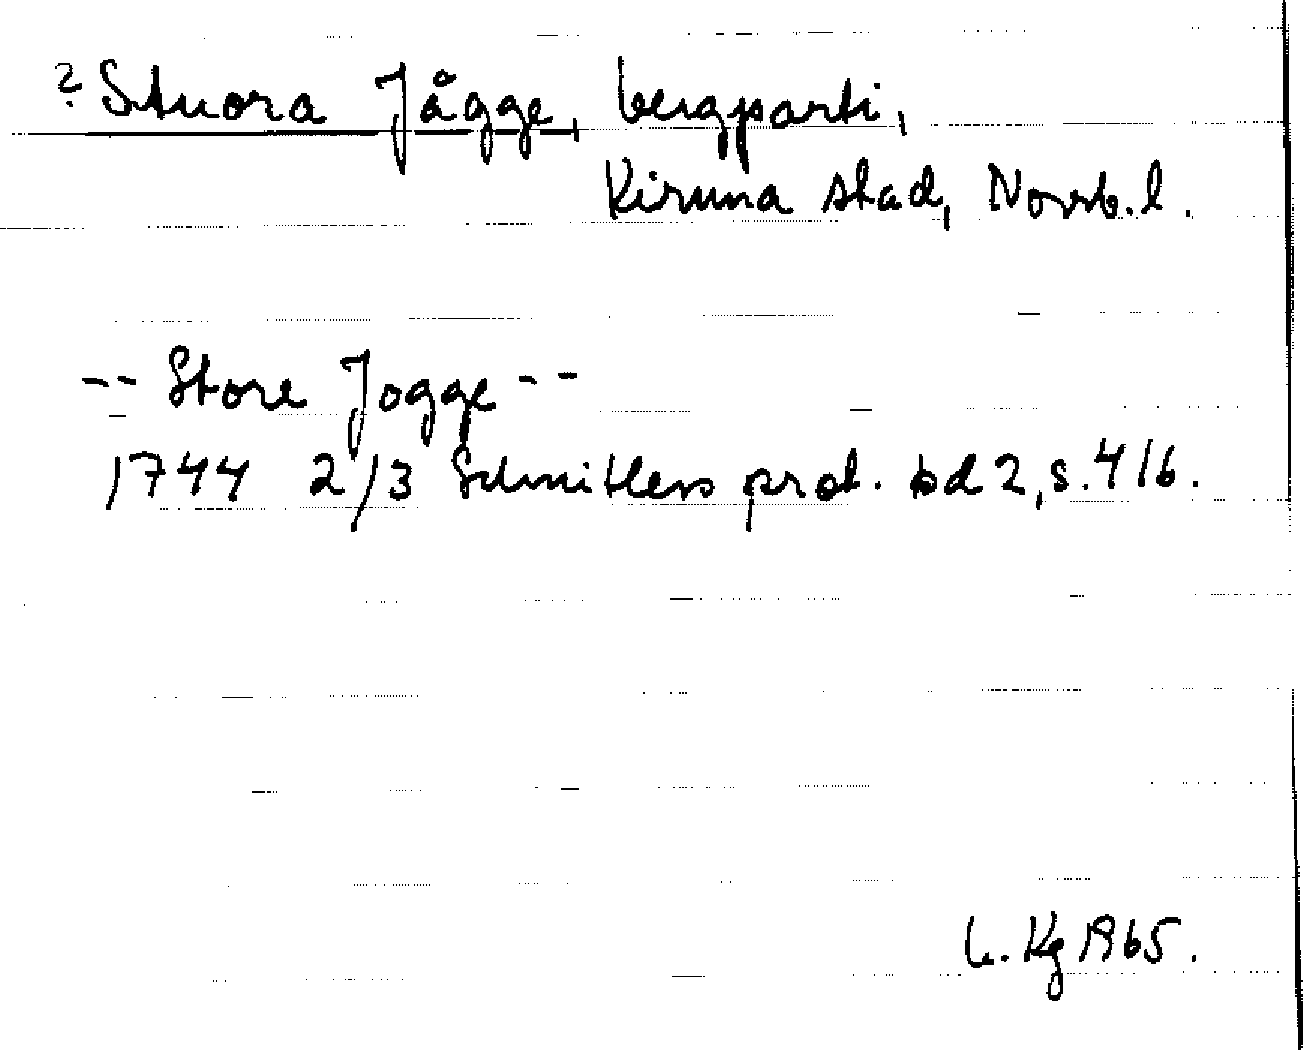 ? Stuora Jågge, bergparti,
Kiruna stad, Norrb. l.
-- Store Jogge --
1744 2/3 Schnitlers prot. bd 2, s. 416.
Kg 1965.